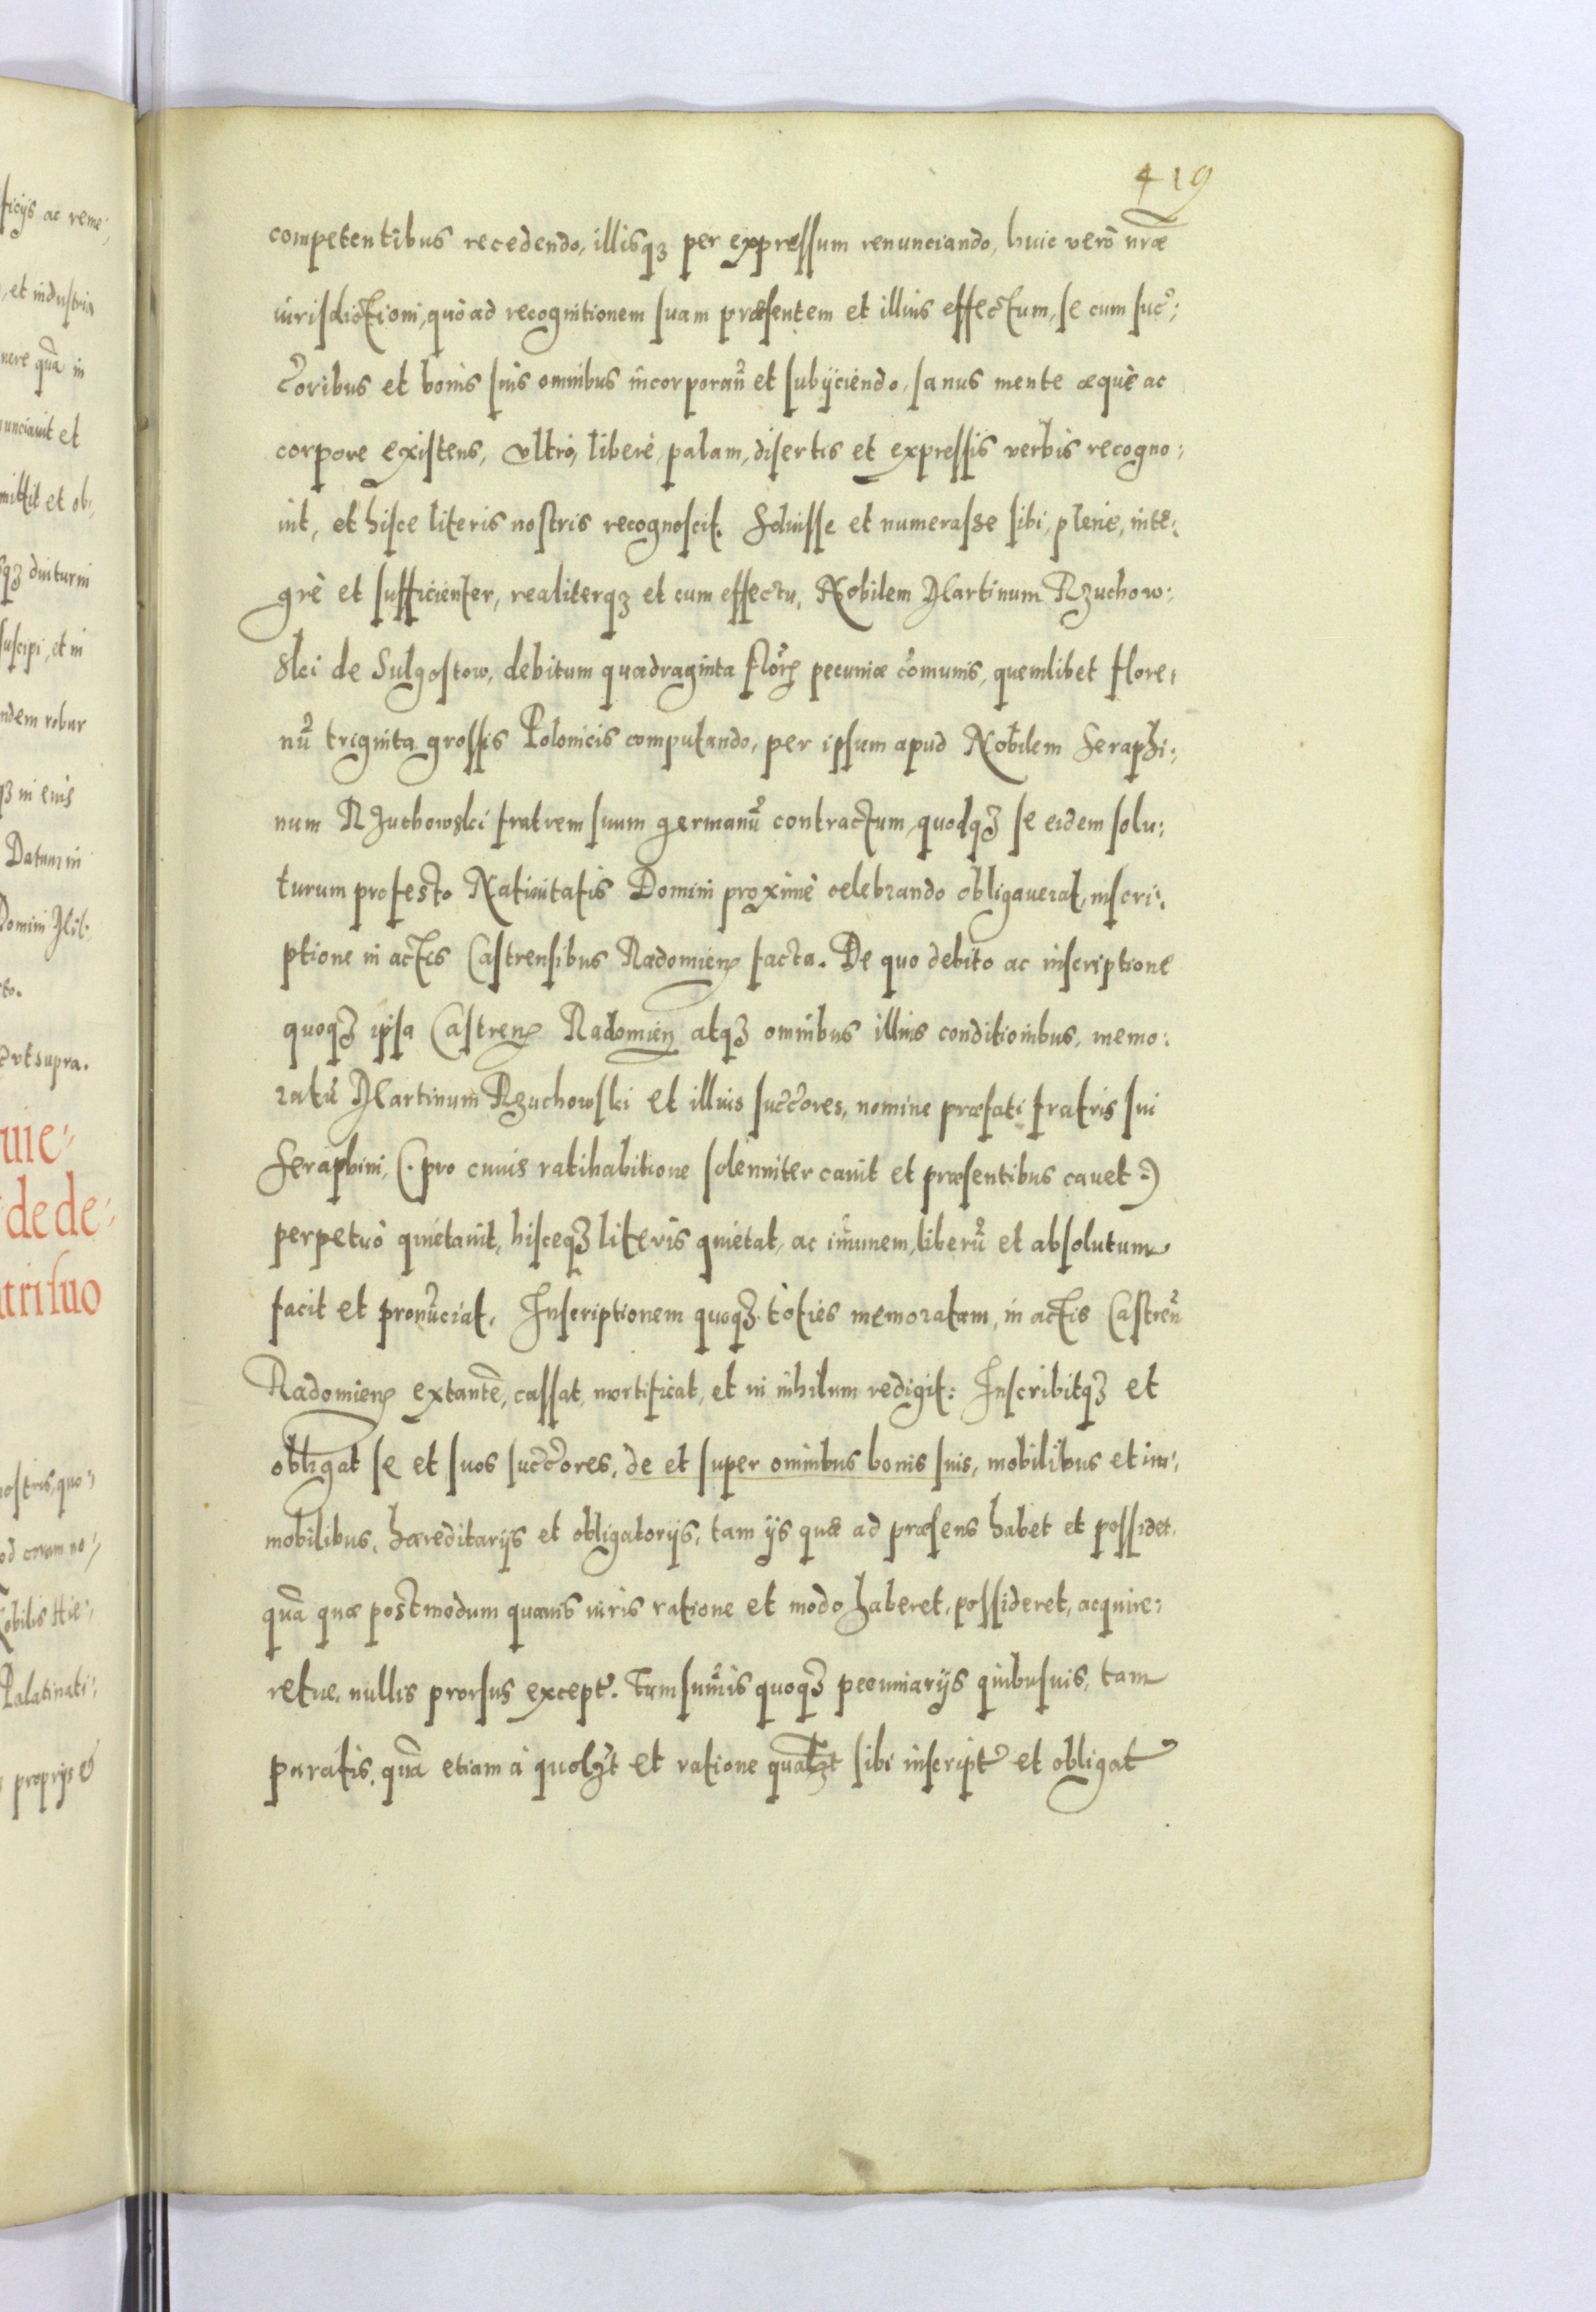 419
competentibus recedendo, illisqꝫ per expressum renunciando, huic verò nr̃æ
iurisdictioni, quò ad recognitionem suam præsentem et illius effectum, se cum suc̃:
c̃oribus et bonis suis omnibus incorporañ et subÿciendo, sanus mente æquè ac
corpore existens, vltrò, liberè, palam, disertis et expressis verbis recogno:
uit, et hisce literis nostris recognoscit. Soluisse et numerasse sibi, plenè, inte:
grè et sufficienter, realiterqꝫ et cum effectu, Nobilem Martinum Rzuchow:
ski de Sulgostow, debitum quadraginta flor̃ pecuniæ c̃omunis, quemlibet flore:
nũ triginta grossis Polonicis computando, per ipsum apud Nobilem Seraphi:
num Rzuchowski fratrem suum germanũ contractum, quodqꝫ se eidem solu:
turum pro festo Natiuitatis Domini proximè celebrando obligauerat, inscri:
ptione in actis Castrensibus Radomieñ facta. De quo debito ac inscriptione
quoqꝫ ipsa Castreñ Radomieñ atqꝫ omnibus illius conditionibus, memo:
ratũ Martinum Rzuchowski et illius succ̃ores, nomine præfati fratris sui
Seraphini, (. pro cuius ratihabitione solenniter cauit et præsentibus cauet .)
perpetuò quietauit, hisceqꝫ literis quietat, ac im̃unem, liberũ et absolutum
facit et pronũciat. Inscriptionem quoqꝫ toties memoratam, in actis Castreñ
Radomieñ extantẽ, cassat, mortificat, et in nihilum redigit: Inscribitqꝫ et
obligat se et suos succ̃ores, de et super omnibus bonis suis, mobilibus et im:
mobilibus, hæreditarijs et obligatorijs, tam ijs quæ ad præsens habet et possidet,
quã quæ postmodum quouis iuris ratione et modo haberet, possideret, acquire:
retue, nullis prorsus except̃. Tum sum̃is quoqꝫ pecuniarijs quibusuis, tam
paratis, quã etiam à quolꝫt et ratione qualꝫt sibi inscript̃ et obligat̃